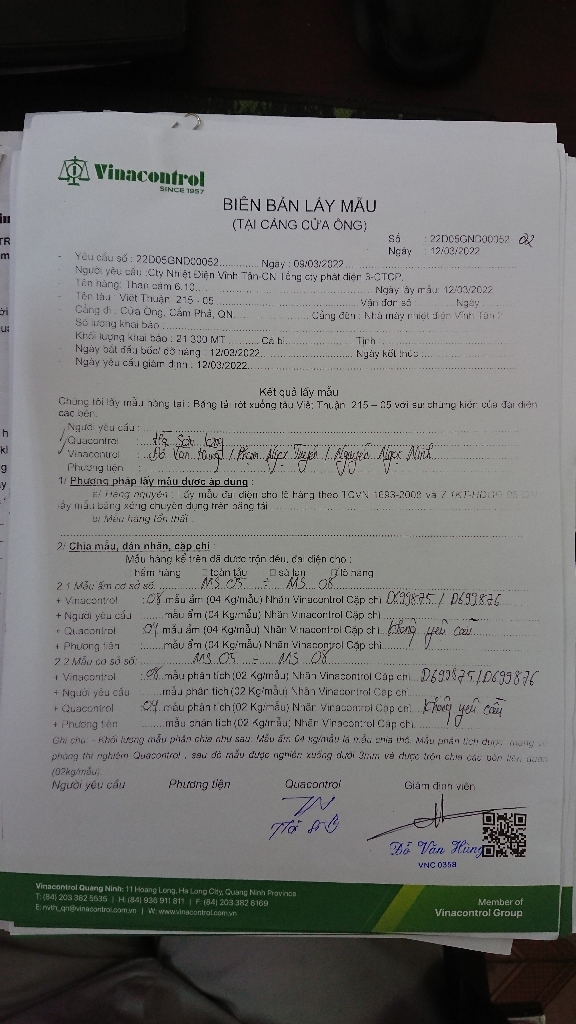 Vinacontrol
SINCE 1957
BIÊN BẢN LẤY MẪU
(TẠI CẢNG CỬA ÔNG)
Số : 22D05GND00052 02
Ngày : 12/03/2022
- Yêu cầu số : 22D05GND00052 Ngày : 09/03/2022
Người yêu cầu :Cty Nhiệt Điện Vĩnh Tân-CN Tổng cty phát điện 3-CTCP.
- Tên hàng: Than cám 6.10 Ngày lấy mẫu: 12/03/2022
- Tên tàu : Việt Thuận 215 - 05 Vận đơn số Ngày
- Cảng đi : Cửa Ông, Cẩm Phả, QN Cảng đến : Nhà máy nhiệt điện Vĩnh Tân 2
- Số lượng khai báo
Khối lượng khai báo : 21.300 MT Ca bi Tịnh
Ngày bắt đầu bốc/ dỡ hàng : 12/03/2022 Ngày kết thúc :
Ngày yêu cầu giám định : 12/03/2022
Kết quả lấy mẫu
Chúng tôi lấy mẫu hàng tại : Băng tải rót xuống tàu Việt Thuận 215 – 05 với sự chứng kiến của đại diện
các bên:
Người yêu cầu :
Quacontrol :
Vinacontrol : Đỗ Văn Hùng / Phạm Ngọc / Nguyễn Ngọc Ninh
Phương tiện :
1/ Phương pháp lấy mẫu được áp dụng :
a/ Hàng nguyên : lấy mẫu đại diện cho lô hàng theo TCVN 1693-2008 và
lấy mẫu bằng xẻng chuyên dụng trên băng tải
b/ Mẫu hàng tổn thất
2/ Chia mẫu, dán nhãn, cặp chì :
Mẫu hàng kể trên đã được trộn đều, đại diện cho :
hầm hàng toàn tàu sà lan lô hàng
2.1 Mẫu ẩm cơ sở số: MS 05 ÷ MS 08
+ Vinacontrol : 08 mẫu ẩm (04 Kg/mẫu) Nhãn Vinacontrol Cặp chì D699875 / D699876
+ Người yêu cầu mẫu ẩm (04 Kg/mẫu) Nhãn Vinacontrol Cặp chì
+ Quacontrol : 04 mẫu ẩm (04 Kg/mẫu) Nhãn Vinacontrol Cặp chì không yêu cầu
+ Phương tiện : mẫu ẩm (04 Kg/mẫu) Nhãn Vinacontrol Cặp chì
2.2 Mẫu cơ sở số: MS 05 - MS 08
+ Vinacontrol : 08 mẫu phân tích (02 Kg/mẫu) Nhãn Vinacontrol Cặp chì D699875/D699876
+ Người yêu cầu : mẫu phân tích (02 Kg/mẫu) Nhãn Vinacontrol Cặp chì
+ Quacontrol : 04 mẫu phân tích (02 Kg/mẫu) Nhãn Vinacontrol Cặp chì không yêu cầu
+ Phương tiện : mẫu phân tích (02 Kg/mẫu) Nhãn Vinacontrol Cặp chì
Ghi chú: - Khối lượng mẫu phân chia như sau: Mẫu ẩm 04 kg/mẫu là mẫu chia thô. Mẫu phân tích được mang về
phòng thí nghiệm Quacontrol , sau đó mẫu được nghiền xuống dưới 3mm và được trộn chia các bên liên quan
(02kg/mẫu).
Người yêu cầu Phương tiện Quacontrol Giám định viên
Đỗ Văn Hùng
VNC 0358
Vinacontrol Quang Ninh: 11 Hoang Long, Ha Long City, Quang Ninh Province
T: (84) 203 382 5535 | H: (84) 936 911 811 | F: (84) 203 382 6169
E: nvth_qn@vinacontrol.com.vn | W: www.vinacontrol.com.vn
Member of
Vinacontrol Group